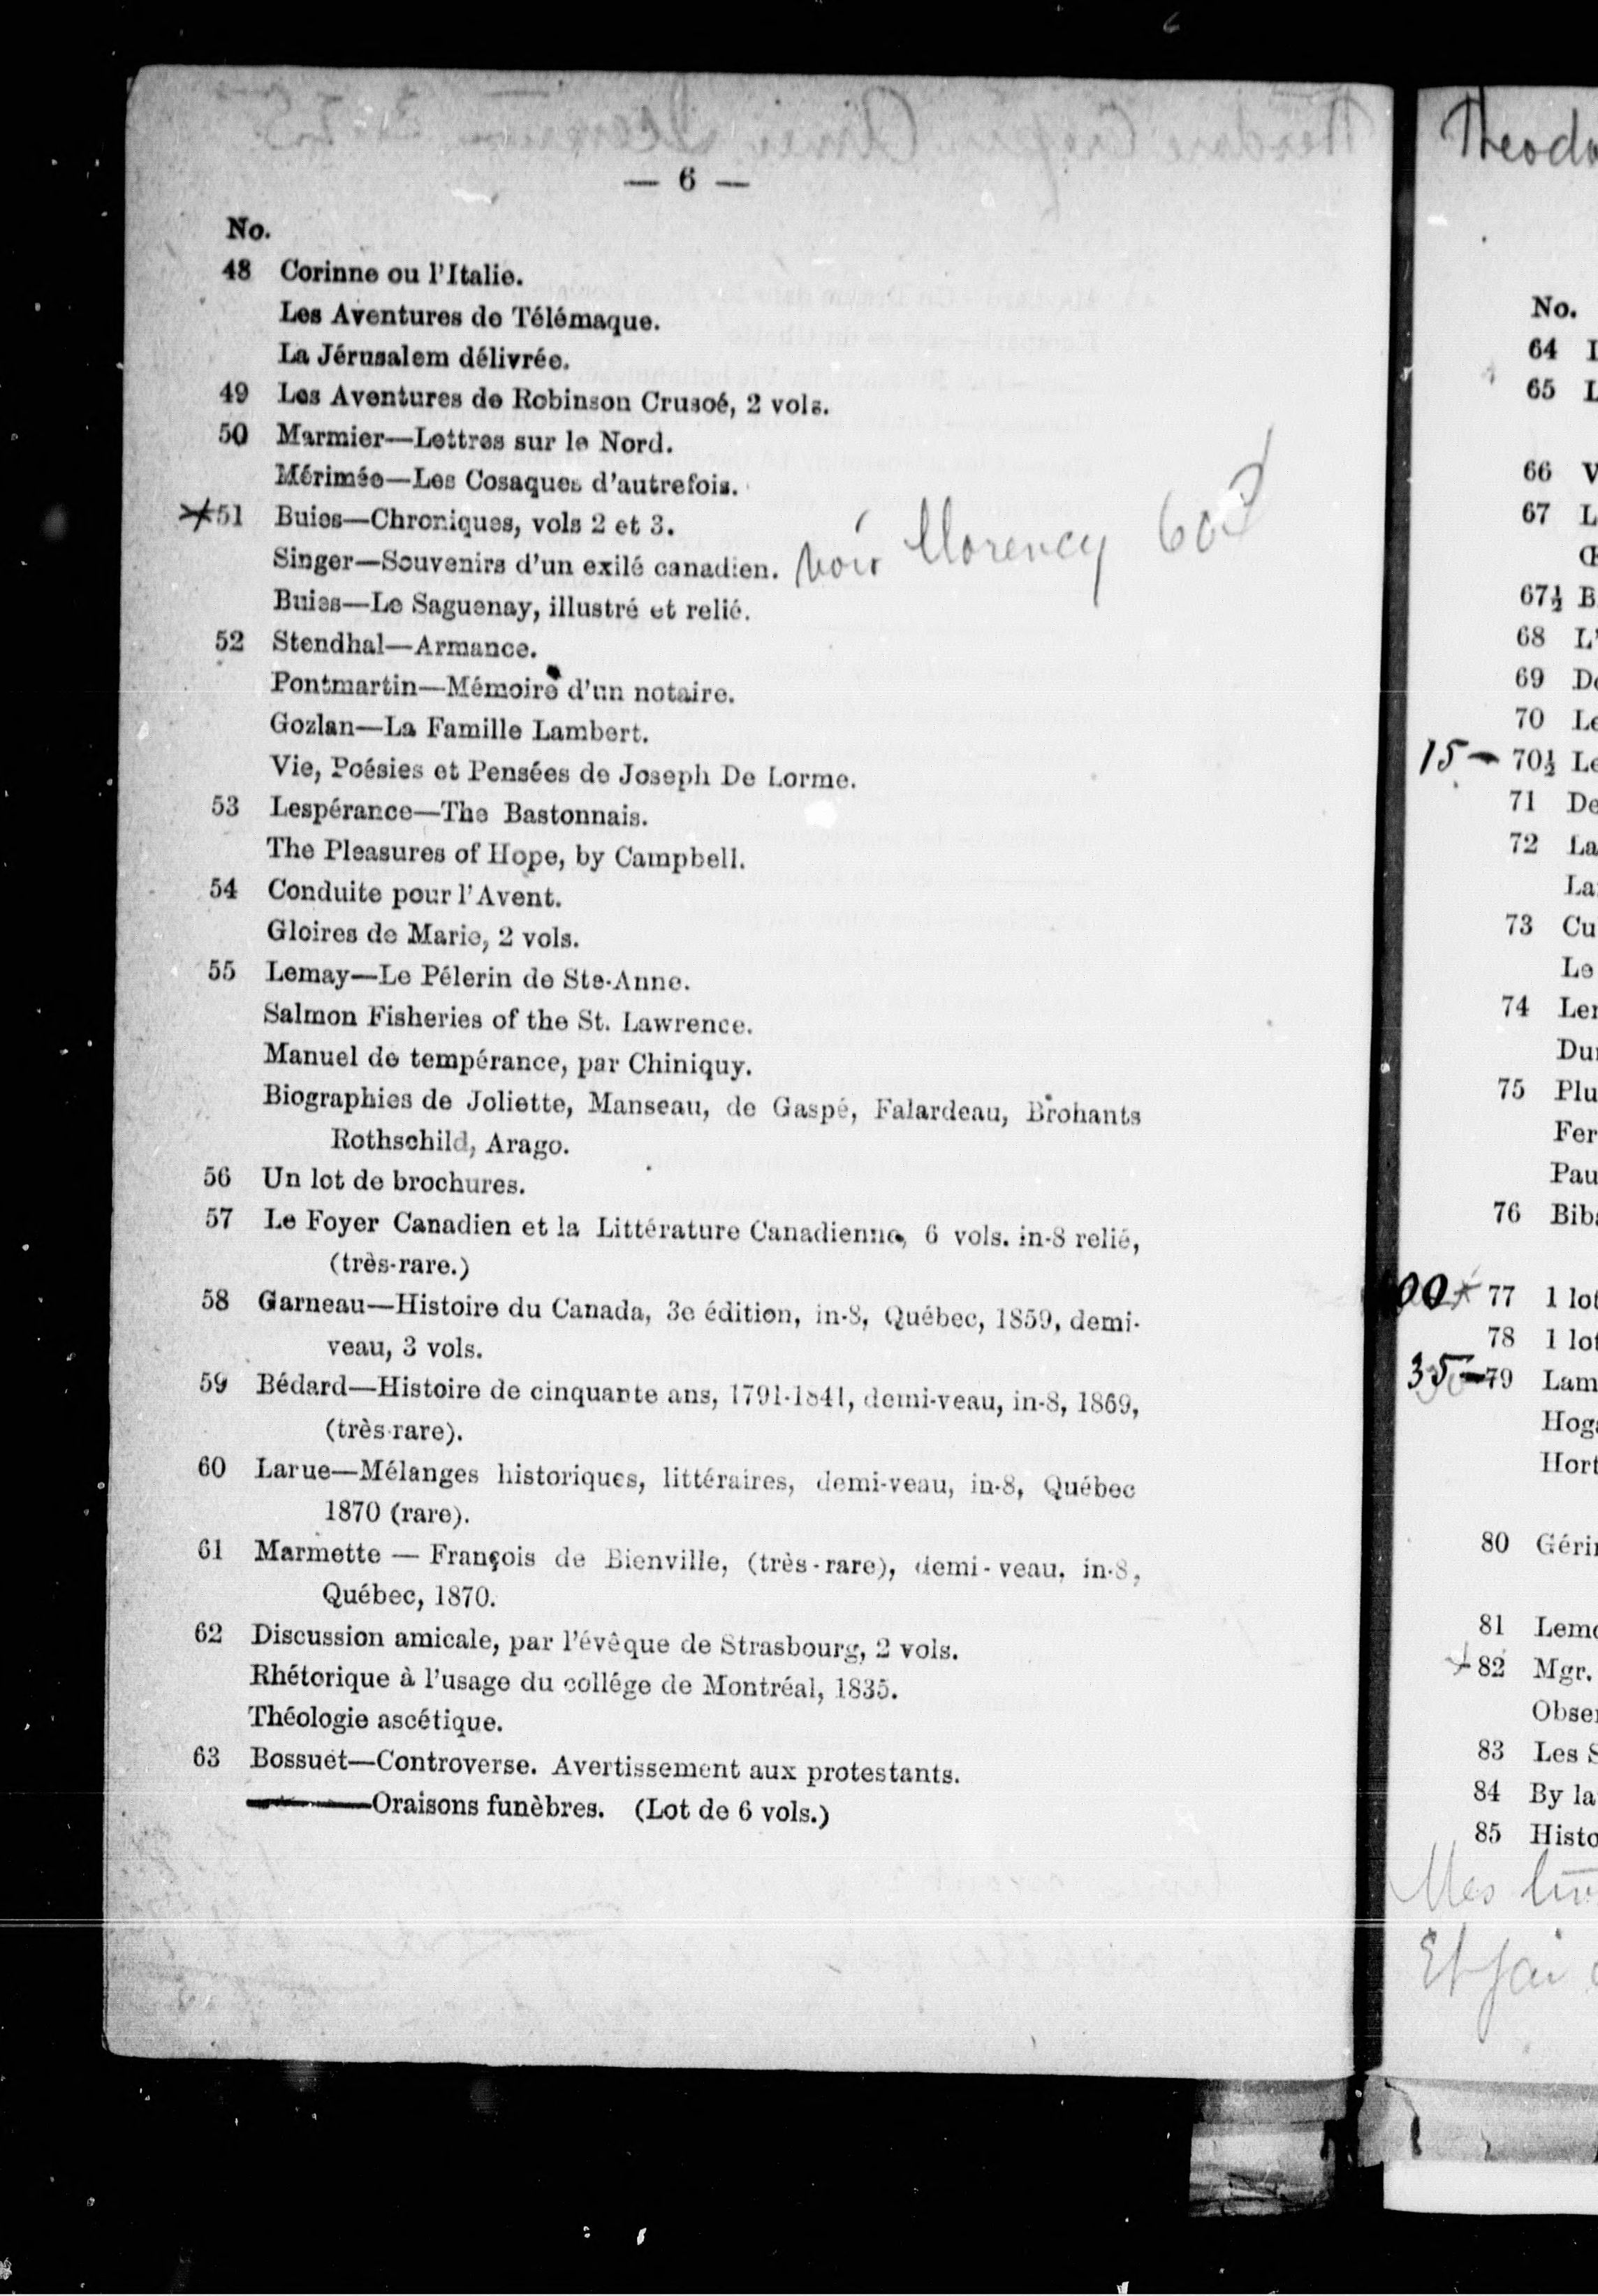 — 6 —
No.
48 Corinne ou l'Italie.
Les Aventures de Télémaque.
La Jérusalem délivrée.
49 Les Aventures de Robinson Crusoé, 2 vols.
50 Marmier—Lettres sur le Nord.
Mérimée—Les Cosaques d'autrefois.
51 Buies—Chroniques, vols 2 et 3.
Singer—Souvenirs d'un exilé canadien. voir Morency 60
Buies—Le Saguenay, illustré et relié.
52 Stendhal—Armance.
Pontmartin—Mémoire d'un notaire.
Gozlan—La Famille Lambert.
Vie, Poésies et Pensées de Joseph De Lorme.
53 Lespérance—The Bastonnais.
The Pleasures of Hope, by Campbell.
54 Conduite pour l'Avent.
Gloires de Marie, 2 vols.
55 Lemay—Le Pélerin de Ste-Anne.
Salmon Fisheries of the St. Lawrence.
Manuel de tempérance, par Chiniquy.
Biographies de Joliette, Manseau, de Gaspé, Falardeau, Brohants
Rothschild, Arago.
56 Un lot de brochures.
57 Le Foyer Canadien et la Littérature Canadienne, 6 vols. in-8 relié,
(très-rare.)
58 Garneau—Histoire du Canada, 3e édition, in-8, Québec, 1859, demi-
veau, 3 vols.
59 Bédard—Histoire de cinquante ans, 1791-1841, demi-veau, in-8, 1869,
(très-rare).
60 Larue—Mélanges historiques, littéraires, demi-veau, in-8, Québec
1870 (rare).
61 Marmette — François de Bienville, (très-rare), demi-veau, in-8,
Québec, 1870.
62 Discussion amicale, par l'évêque de Strasbourg, 2 vols.
Rhétorique à l'usage du collége de Montréal, 1835.
Théologie ascétique.
63 Bossuet—Controverse. Avertissement aux protestants.
———Oraisons funèbres. (Lot de 6 vols.)
Theodo
No.
64
65
66
67
67½
68 L'
69
70 Le
15 — 70½ Le
71 De
72 La
73 Cu
Le
74
75 Plu
Fer
Pau
76
00 77 1 lot
78 1 lot
35 — 79 Lam
Hog
Hort
80 Géri
81 Lemo
82 Mgr.
Obse
83 Les
84 By la
85 Histo
Mes
Et j'ai